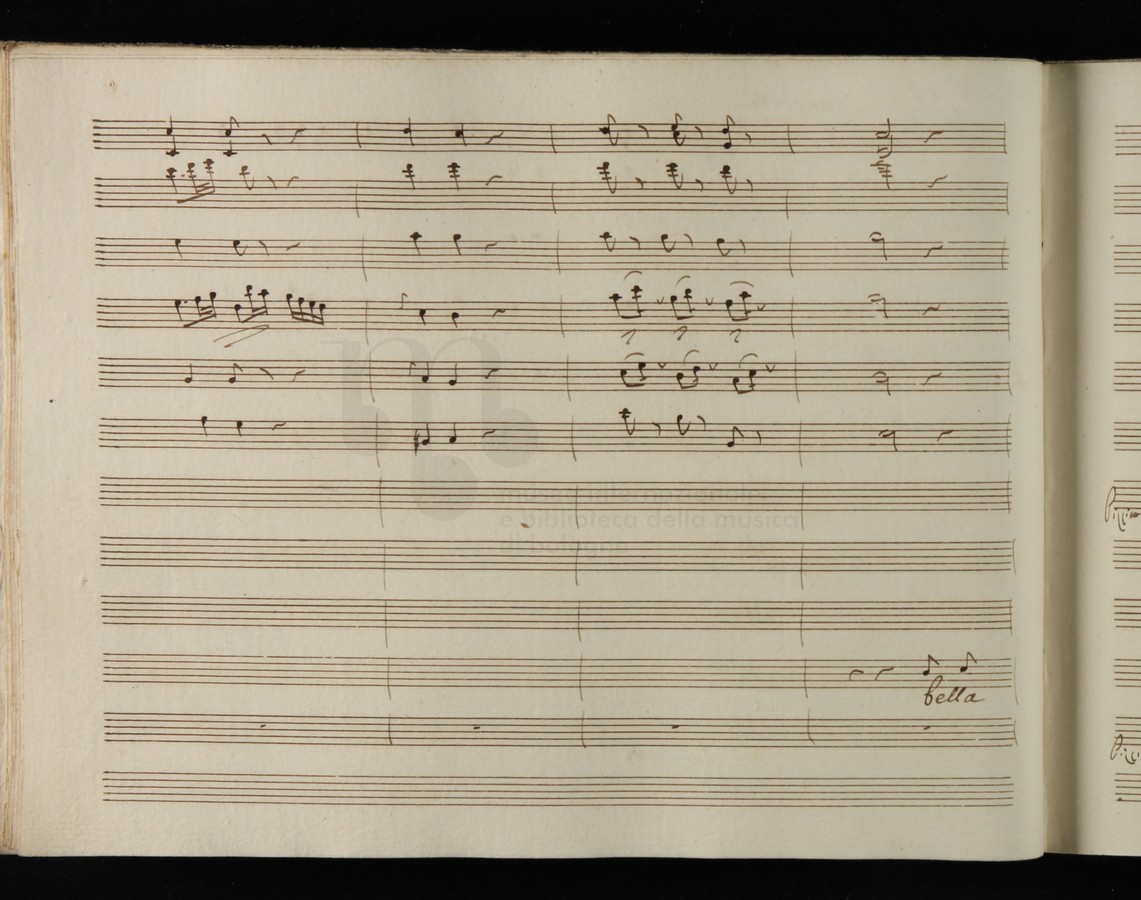 museo internazionale
e biblioteca della musica
di bologna
bella